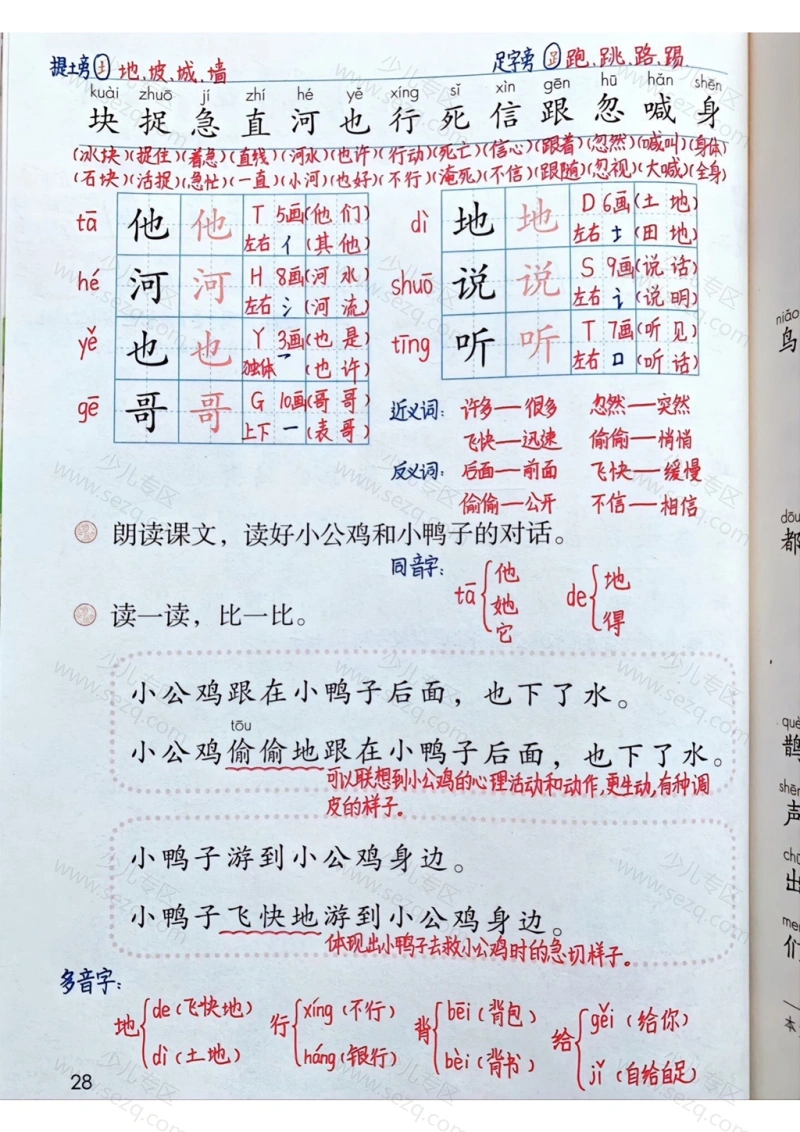 提土旁 土 地、坡、城、墙
足字旁 𧾷 跑、跳、路、踢
kuài zhuō jí zhí hé yě xíng sǐ xìn gēn hū hǎn shēn
块 捉 急 直 河 也 行 死 信 跟 忽 喊 身
(冰块)(捉住)(着急)(直线)(河水)(也许)(行动)(死亡)(信心)(跟着)(忽然)(喊叫)(身体)
(石块)(活捉)(急忙)(一直)(小河)(也好)(不行)(淹死)(不信)(跟随)(忽视)(大喊)(全身)
tā 他 他 T 5画(他 们)
左右 亻 (其 他)
hé 河 河 H 8画(河 水)
左右 氵 (河 流)
yě 也 也 Y 3画(也 是)
独体 乛 (也 许)
gē 哥 哥 G 10画(哥 哥)
上下 一 (表 哥)
dì 地 地 D 6画(土 地)
左右 土 (田 地)
shuō 说 说 S 9画(说 话)
左右 讠 (说 明)
tīng 听 听 T 7画(听 见)
左右 口 (听 话)
近义词: 许多—很多 忽然—突然
飞快—迅速 偷偷—悄悄
反义词: 后面—前面 飞快—缓慢
偷偷—公开 不信—相信
朗读课文，读好小公鸡和小鸭子的对话。
同音字: tā 他 她 它 de 地 得
读一读，比一比。
小公鸡跟在小鸭子后面，也下了水。
tōu
小公鸡偷偷地跟在小鸭子后面，也下了水。
可以联想到小公鸡的心理活动和动作,更生动,有种调
皮的样子。
小鸭子游到小公鸡身边。
小鸭子飞快地游到小公鸡身边。
体现出小鸭子去救小公鸡时的急切样子。
多音字:
地 de (飞快地) dì (土地)
行 xíng (不行) háng (银行)
背 bēi (背包) bèi (背书)
给 gěi (给你) jǐ (自给自足)
28
niǎo
鸟
dōu
都
què
鹊
shēn
声
chū
出
men
们
本
少儿专区
www.sezq.com